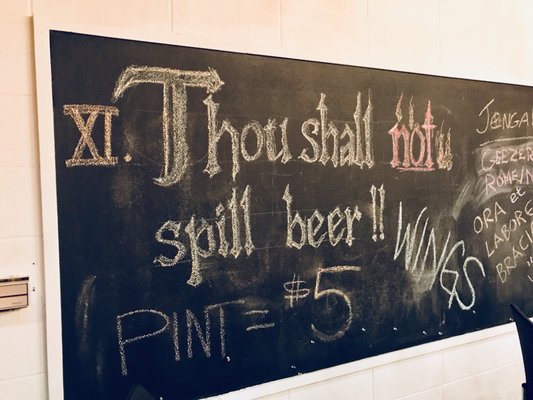 XI. Thou shall not
spill beer!!
WINGS
PINT = $5
JENGA
GEEZER
ROMEIN
ORA et
LABORE